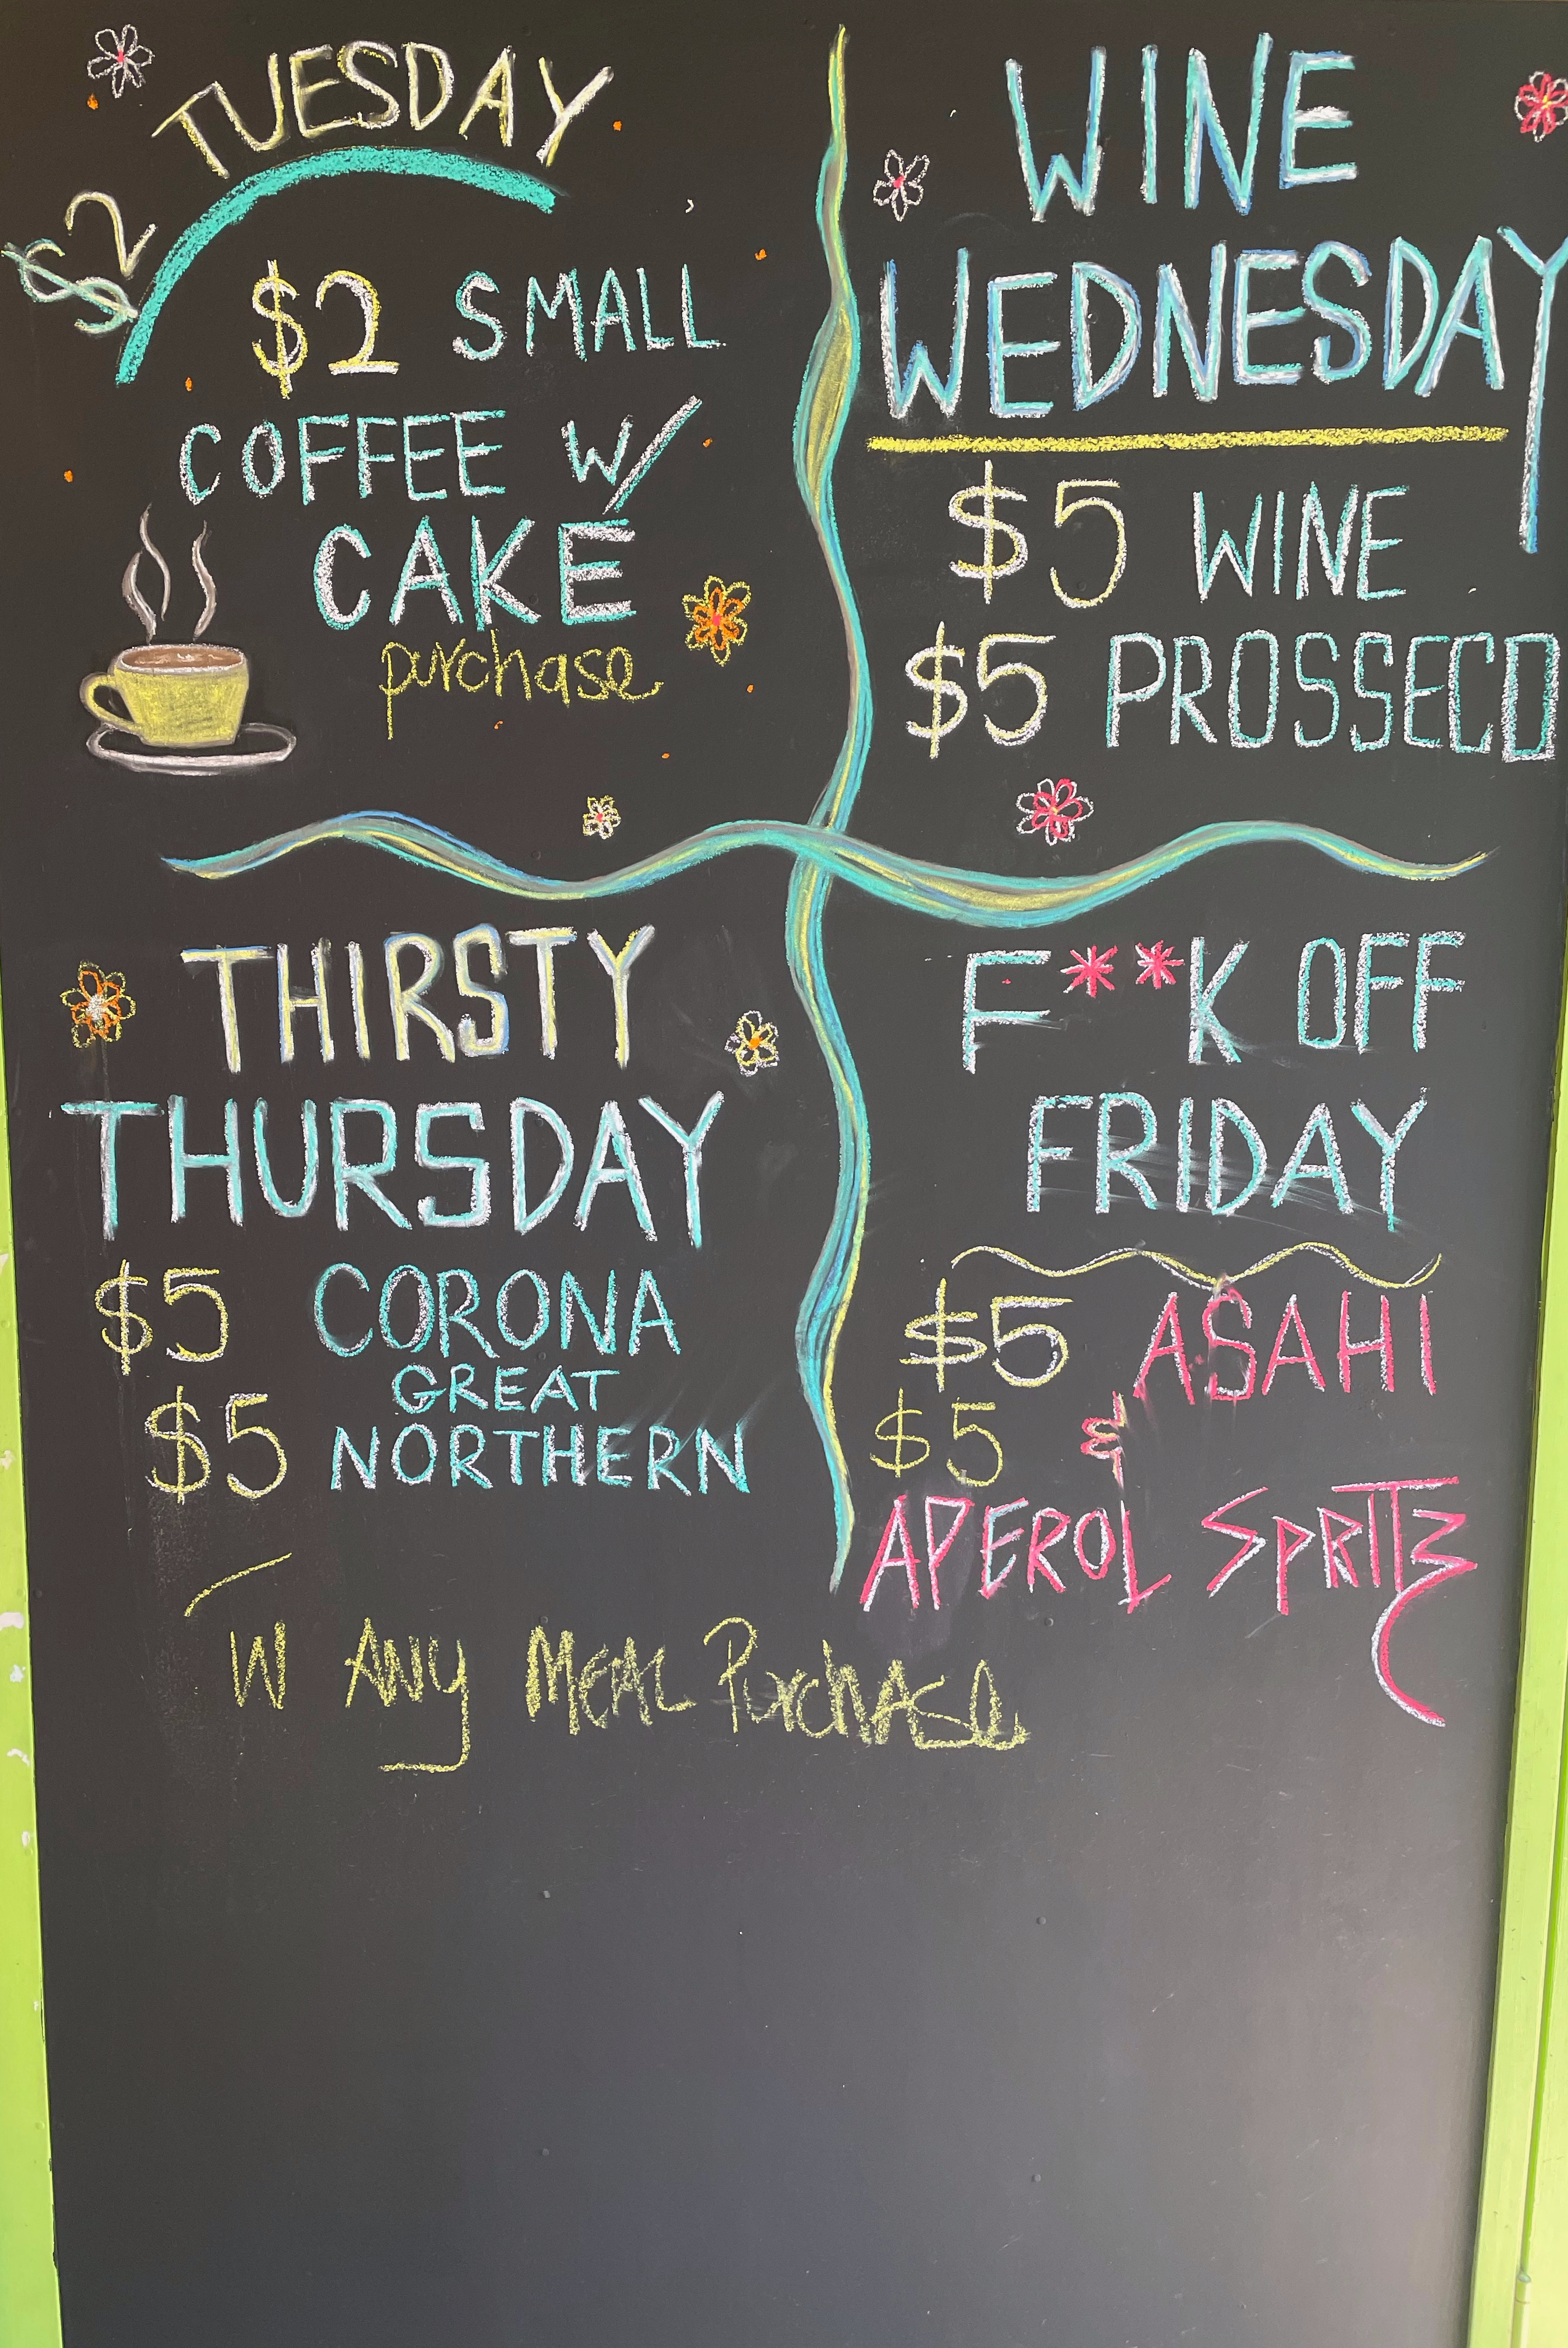 $2 TUESDAY
$2 SMALL
COFFEE W/
CAKE
purchase
WINE
WEDNESDAY
$5 WINE
$5 PROSSECO
THIRSTY
THURSDAY
$5 CORONA
GREAT
$5 NORTHERN
F**K OFF
FRIDAY
$5 ASAHI
$5 &
APEROL SPRITZ
W ANY MEAL PURCHASE